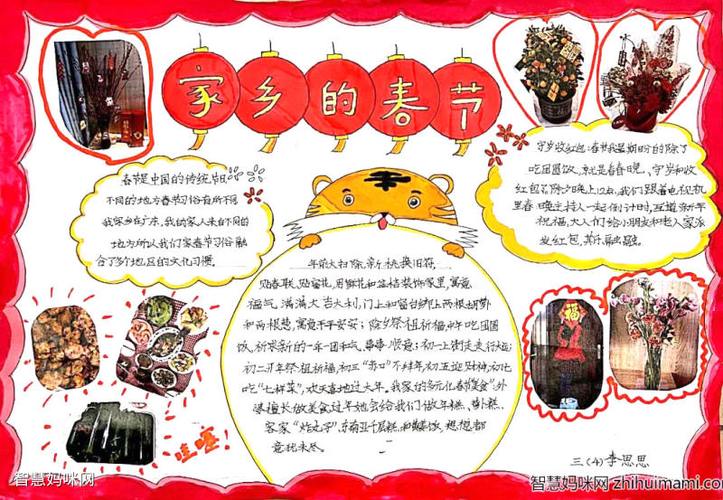 家乡的春节
春节是中国的传统节日
不同的地方春节习俗有所不同
我家乡在广东,我的家人来自不同的
地方所以我们家春节习俗融
合了多个地区的文化习惯。
守岁收红包:春节我最期盼的除了
吃团圆饭,就是春晚、守岁和收
红包了。除夕晚上12点,我们跟着电视机
里春晚主持人一起倒计时,互道新年
祝福,大人们给小朋友和老人家派
发红包,其乐融融。
年前大扫除,新桃换旧符,
贴春联、贴窗花,用鲜花和盆桔装饰家里,寓意
福气满满大吉大利,门上和窗台绑上两根胡萝卜
和两根葱,寓意平平安安;除夕祭祖祈福,中午吃团圆
饭,祈求新的一年团团和气、事事顺意;初一上街走走行大运;
初二开年祭祖祈福,初三“赤口”不拜年,初五迎财神,初七
吃“七样菜”,欢天喜地过大年。我家的多元化春节美食“外
婆擅长做美食,过年她会给我们做年糕、萝卜糕、
客家“炸丸子”、东南亚千层糕
想想都
意犹未尽。
哇塞!
三(4)李思思
智慧妈咪网
智慧妈咪网 zhihuimami.co